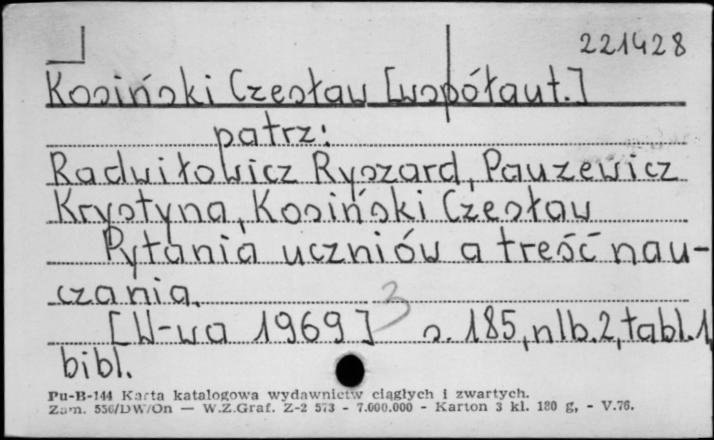 221428
Kosiński Czesław [współaut.]
patrz:
Radwiłowicz Ryszard, Pauzewicz
Krystyna, Kosiński Czesław
Pytania uczniów a treść nau-
czania.
3
[W-wa 1969] s. 185, nlb. 2, tabl. 1,
bibl.
Pu-B-144 Karta katalogowa wydawnictw ciągłych i zwartych.
Zam. 556/DW/On — W.Z.Graf. Z-2 573 - 7.000.000 - Karton 3 kl. 180 g, - V.76.